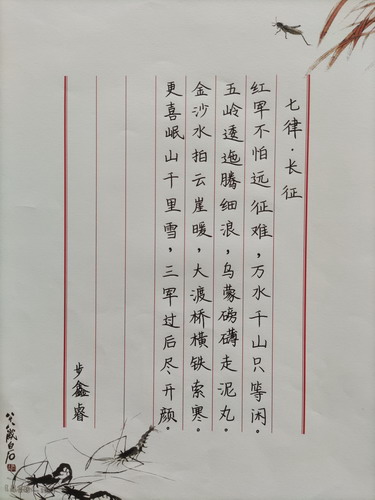 七律·长征
红军不怕远征难，万水千山只等闲。
五岭逶迤腾细浪，乌蒙磅礴走泥丸。
金沙水拍云崖暖，大渡桥横铁索寒。
更喜岷山千里雪，三军过后尽开颜。
步鑫睿
八八歲白石